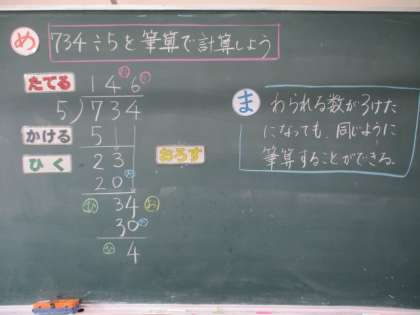 め 734÷5を筆算で計算しよう
たてる 146
5)734
かける 5
ひく 23
おろす
20
34
30
4
ま わられる数が3けた
になっても、同じように
筆算することができる。